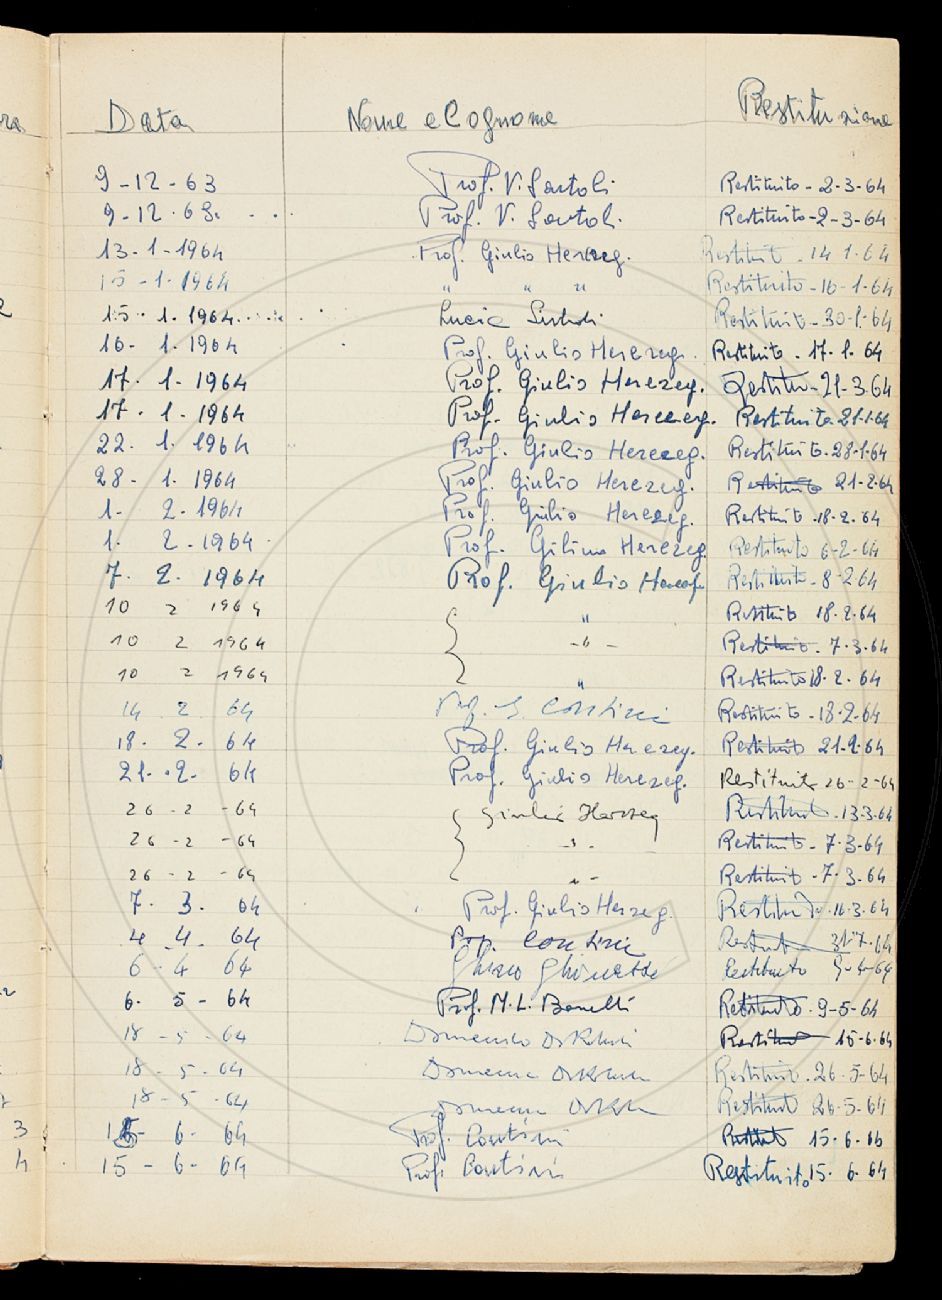 Data Nome e Cognome Restituzione
9-12-63 Prof. V. Santoli Restituito - 2-3-64
9-12-63. Prof. V. Santoli Restituito - 2-3-64
13-1-1964 Prof. Giulio Herczeg. Restituito 14 1-64
15-1-1964 " " " Restituito - 16-1-64
15. 1. 1964 Lucia Restituito - 30-1-64
16. 1. 1964 Prof. Giulio Herczeg. Restituito. 17.1.64
17. 1. 1964 Prof. Giulio Herczeg. Restituito - 21-3.64
17. 1. 1964 Prof. Giulio Herczeg. Restituito 21-1-64
22. 1. 1964 Prof. Giulio Herczeg. Restituito. 28-1-64
28 - 1. 1964 Prof. Giulio Herczeg. Restituito 21-2-64
1- 2. 1964 Prof. Giulio Herczeg. Restituito 18-2.64
1. 2. 1964 Prof. Herczeg Restituito 6-2-64
7. 2. 1964 Prof. Giulio Herczeg Restituito - 8-2-64
10 2 1964 " Restituito 18-2-64
10 2 1964 -"- Restituito. 7-3-64
10 2 1964 " Restituito 18-2. 64
14 2 64 Prof. G. Contini Restituito - 18-2-64
18. 2. 64 Prof. Giulio Herczeg. Restituito 21-2-64
21. 2. 64 Prof. Giulio Herczeg. Restituito 26-2-64
26-2-64 Giulio Herczeg Restituito. 13-3-64
26-2-64 -"- Restituito - 7-3-64
26-2-64 "- Restituito - 7-3-64
7. 3. 64 Prof. Giulio Herczeg. Restituito. 16-3-64
4 4. 64 Prof. Contini Restituito 64
6 - 4 64 Ghino Ghinassi Restituito 9-4-64
6. 5 - 64 Prof. M. L. Restituito. 9-5-64
18 - 5 - 64 Domenico Restituito 15-6-64
18 - 5 - 64 Domenico Restituito. 26-5-64
18 - 5 - 64 Domenico Restituito 26-5-64
6- 64 Prof. Contini 15-6-
15 - 6 - 64 Prof. Contini Restituito 15-6-64